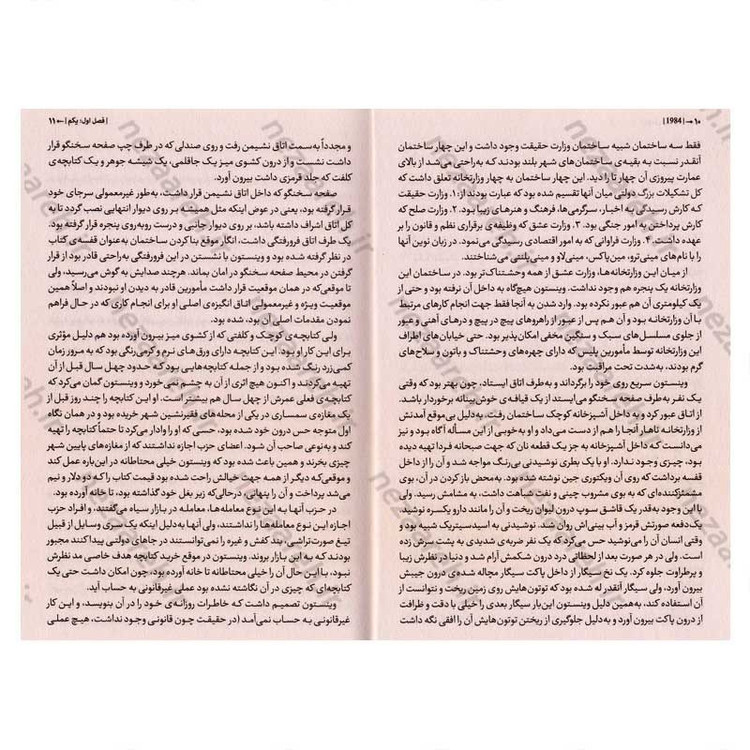 ۱۰ → |1984|
فقط سه ساختمان شبیه ساختمان وزارت حقیقت وجود داشت و این چهار ساختمان
آنقدر نسبت به بقیه‌ی ساختمان‌های شهر بلند بودند که به‌راحتی می‌شد از بالای
عمارت پیروزی آن چهار تا را دید. این چهار ساختمان به چهار وزارتخانه تعلق داشت که
کل تشکیلات بزرگ دولتی میان آنها تقسیم شده بود که عبارت بودند از: ۱. وزارت حقیقت
که کارش رسیدگی به اخبار، سرگرمی‌ها، فرهنگ و هنرهای زیبا بود. ۲. وزارت صلح که
کارش پرداختن به امور جنگی بود. ۳. وزارت عشق که وظیفه‌ی برقراری نظم و قانون را بر
عهده داشت. ۴. وزارت فراوانی که به امور اقتصادی رسیدگی می‌نمود. در زبان نوین آنها
را با نام‌های مینی‌ترو، مین‌پاکس، مینی‌لاو و مینی‌پلنتی می‌شناختند.
از میان این وزارتخانه‌ها، وزارت عشق از همه وحشتناک‌تر بود. در ساختمان این
وزارتخانه یک پنجره هم وجود نداشت. وینستون هیچ‌گاه به داخل آن نرفته بود و حتی از
یک کیلومتری آن هم عبور نکرده بود. وارد شدن به آنجا فقط جهت انجام کارهای مرتبط
با آن وزارتخانه بود و آن هم پس از عبور از راهروهای پیچ در پیچ و درهای آهنی و عبور
از جلوی مسلسل‌های سبک و سنگین مخفی امکان‌پذیر بود. حتی خیابان‌های اطراف
این وزارتخانه توسط مأمورین پلیس که دارای چهره‌های وحشتناک و باتون و سلاح‌های
گرم بودند، به‌شدت تحت مراقبت بود.
وینستون سریع روی خود را برگرداند و به‌طرف اتاق ایستاد، چون بهتر بود که وقتی
یک نفر به‌طرف صفحه سخنگو می‌ایستد از یک قیافه‌ی خوش‌بینانه برخوردار باشد.
از اتاق عبور کرد و به داخل آشپزخانه کوچک ساختمان رفت. به‌دلیل بی‌موقع آمدنش
از وزارتخانه ناهار آنجا را هم از دست می‌داد و او به‌خوبی از این مسأله آگاه بود و نیز
می‌دانست که داخل آشپزخانه به جز یک قطعه نان که جهت صبحانه فردا تهیه دیده
بود، چیزی وجود ندارد. او با یک بطری نوشیدنی بی‌رنگ مواجه شد و آن را از داخل
قفسه برداشت که روی آن ویکتوری جین نوشته بود. به‌محض باز کردن در آن، بوی
مشمئزکننده‌ای که به بوی مشروب چینی و نفت شباهت داشت، به مشامش رسید. ولی
با این وجود به‌قدر یک قاشق سوپ درون لیوان ریخت و آن را مانند دارو یکسره نوشید
یک‌دفعه صورتش قرمز و آب بینی‌اش روان شد. نوشیدنی به اسیدسیتریک شبیه بود و
وقتی انسان آن را می‌نوشید حس می‌کرد که یک نفر ضربه‌ی شدیدی به پشت سرش زده
است. ولی در هر صورت بعد از لحظاتی درد درون شکمش آرام شد و دنیا در نظرش زیبا
و پرطراوت جلوه کرد. یک نخ سیگار از داخل پاکت سیگار مچاله شده‌ی درون جیبش
بیرون آورد، ولی سیگار آنقدر له شده بود که توتون‌هایش روی زمین ریخت و نتوانست از
آن استفاده کند، به‌همین دلیل وینستون این‌بار سیگار بعدی را خیلی با دقت و ظرافت
از درون پاکت بیرون آورد و به‌دلیل جلوگیری از ریختن توتون‌هایش آن را افقی نگه داشت
|فصل اول؛ یکم| ← ۱۱
و مجدداً به‌سمت اتاق نشیمن رفت و روی صندلی که در طرف چپ صفحه سخنگو قرار
داشت نشست و از درون کشوی میز یک جاقلمی، یک شیشه جوهر و یک کتابچه‌ی
کلفت که جلد قرمزی داشت بیرون آورد.
صفحه سخنگو که داخل اتاق نشیمن قرار داشت، به‌طور غیرمعمولی سرجای خود
قرار گرفته بود، یعنی در عوض اینکه مثل همیشه بر روی دیوار انتهایی نصب گردد تا به
کل اتاق اشراف داشته باشد، بر روی دیوار جانبی و درست روبه‌روی پنجره قرار گرفته بود.
یک طرف اتاق فرورفتگی داشت، انگار موقع بنا کردن ساختمان به‌عنوان قفسه‌ی کتاب
در نظر گرفته شده بود و وینستون با نشستن در این فرورفتگی به‌راحتی قادر بود از قرار
گرفتن در محیط صفحه سخنگو در امان بماند. هرچند صدایش به گوش می‌رسید، ولی
تا موقعی‌که در همان موقعیت قرار داشت مأمورین قادر به دیدن او نبودند و اصلاً همین
موقعیت ویژه و غیرمعمولی اتاق انگیزه‌ی اصلی او برای انجام کاری که در حال فراهم
نمودن مقدمات اصلی آن بود، شده بود.
ولی کتابچه‌ی کوچک و کلفتی که از کشوی میز بیرون آورده بود هم دلیل مؤثری
برای این کار او بود. این کتابچه دارای ورق‌های نرم و کرمی‌رنگی بود که به مرور زمان
کمی زرد رنگ شده بود و از جمله کتابچه‌هایی بود که حدود چهل سال قبل از آن
تهیه می‌کردند و اکنون هیچ اثری از آن به چشم می‌خورد و وینستون گمان می‌کرد که
کتابچه‌ی فعلی عمرش از چهل سال هم بیشتر است. او این کتابچه را چند روز قبل از
یک مغازه‌ی سمساری در یکی از محله‌های فقیرنشین شهر خریده بود و در همان نگاه
اول متوجه حس درون خود شده بود، حسی که او را وادار می‌کرد تا حتماً کتابچه را تهیه
کند و به‌نوعی صاحب آن شود. اعضای حزب اجازه نداشتند که از مغازه‌های پایین شهر
چیزی بخرند و همین باعث شده بود که وینستون خیلی محتاطانه در این‌باره عمل کند
و موقعی‌که دیگر از همه جهت خیالش راحت شده بود قیمت کتاب را که دو دلار و نیم
می‌شد پرداخت و آن را پنهانی درحالی‌که زیر بغل خود گذاشته بود، تا خانه آورده بود.
در حزب آنها به این نوع معامله‌ها، معامله در بازار سیاه می‌گفتند، و افراد حزب
اجازه این نوع معامله‌ها را نداشتند، ولی آنها به‌دلیل اینکه یک سری وسایل از قبیل
تیغ صورت‌تراشی، بند کفش و غیره را نمی‌توانستند در جاهای دولتی پیدا کنند مجبور
بودند که به این بازار بروند. وینستون در موقع خرید کتابچه هدف خاصی مد نظرش
نبود، با این حال آن را خیلی محتاطانه تا خانه آورده بود، چون امکان داشت حتی یک
کتابچه‌ای که چیزی در آن نگاشته نشده بود عملی غیرقانونی به حساب آید.
وینستون تصمیم داشت که خاطرات روزانه‌ی خود را در آن بنویسد، و این کار
غیرقانونی به حساب نمی‌آمد (در حقیقت چون قانونی وجود نداشت، هیچ عملی
nezaarah.ir